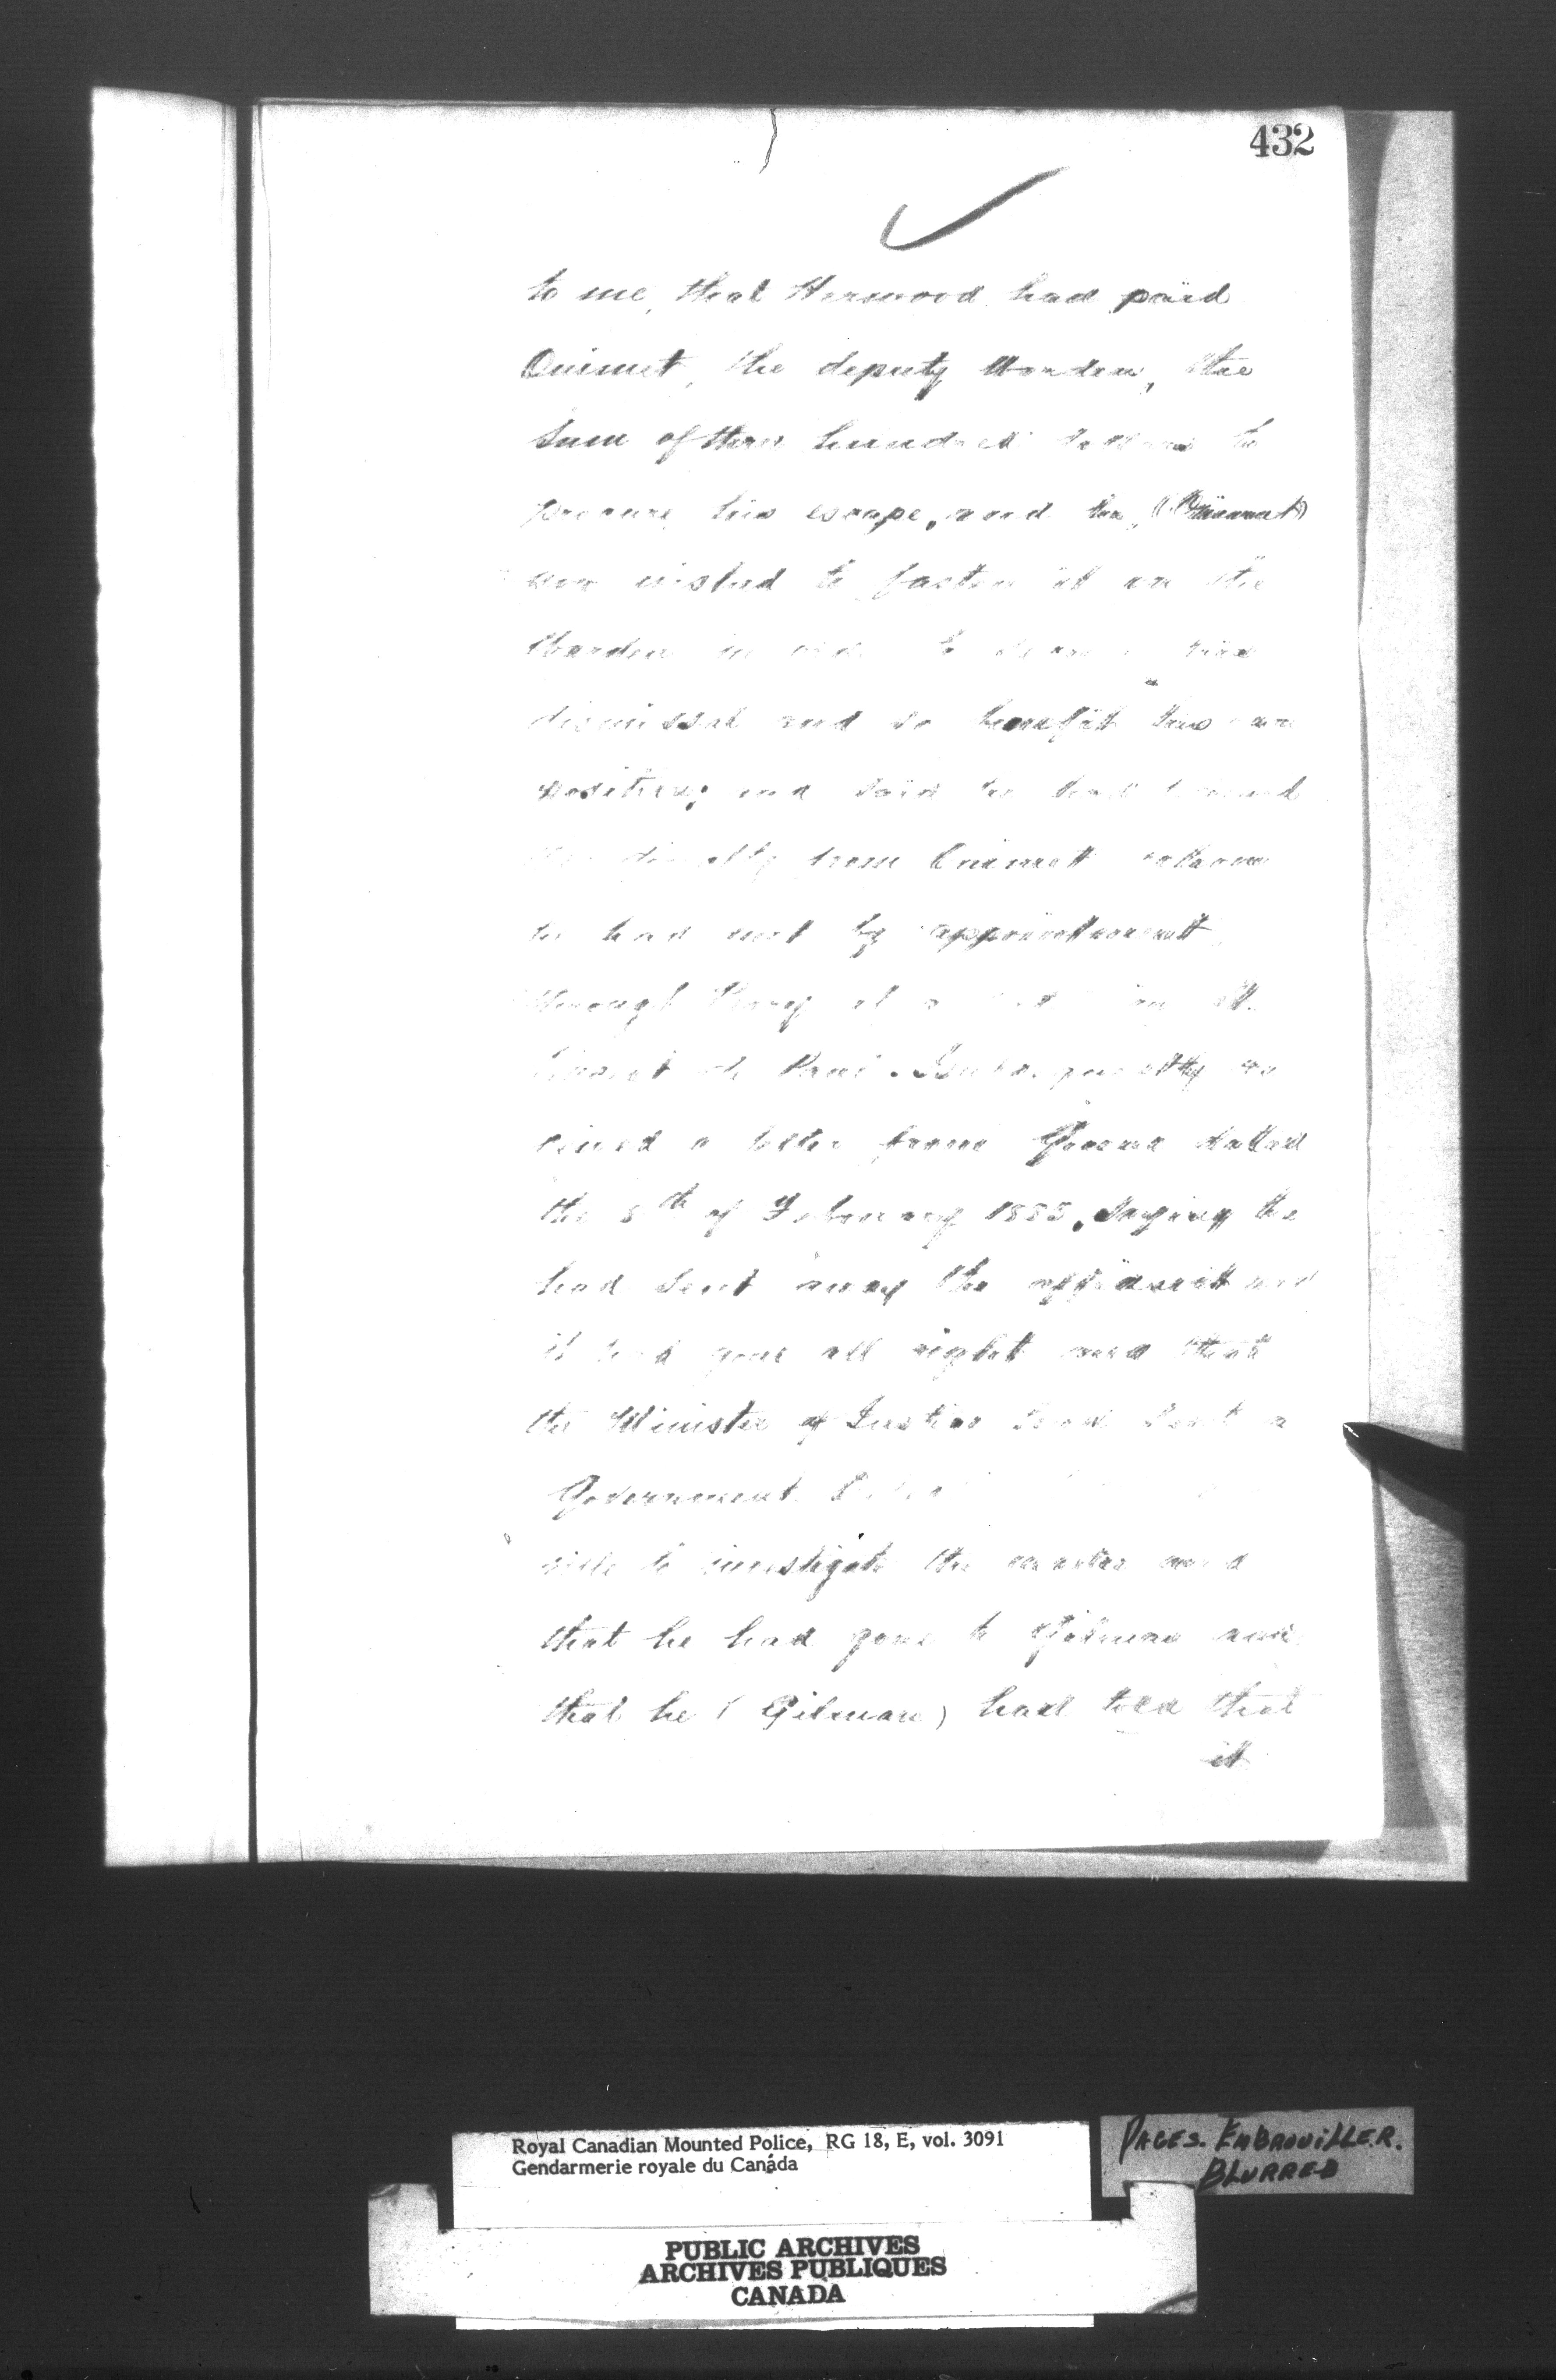 432
to me, that Harwood had paid
Ouimet, the deputy Warden, the
sum of three hundred dollars to
procure his escape, and he, (Ouimet)
now wished to fasten it on the
Warden in order to his
dismissal and so benefit his own
position; and said he had
directly from Ouimet whom
he had met by appointment
through at a in the
de Paul. Subsequently re
ceived a letter from dated
the 8th of February 1885, saying he
had sent away the affidavit and
it had gone all right and that
the Minister of Justice had sent a
Government
ville to investigate the matter and
that he had gone to Gilman and
that he (Gilman) had told that
it
Royal Canadian Mounted Police, RG 18, E, vol. 3091
Gendarmerie royale du Canada
PAGES. EMBROUILLER.
BLURRED
PUBLIC ARCHIVES
ARCHIVES PUBLIQUES
CANADA